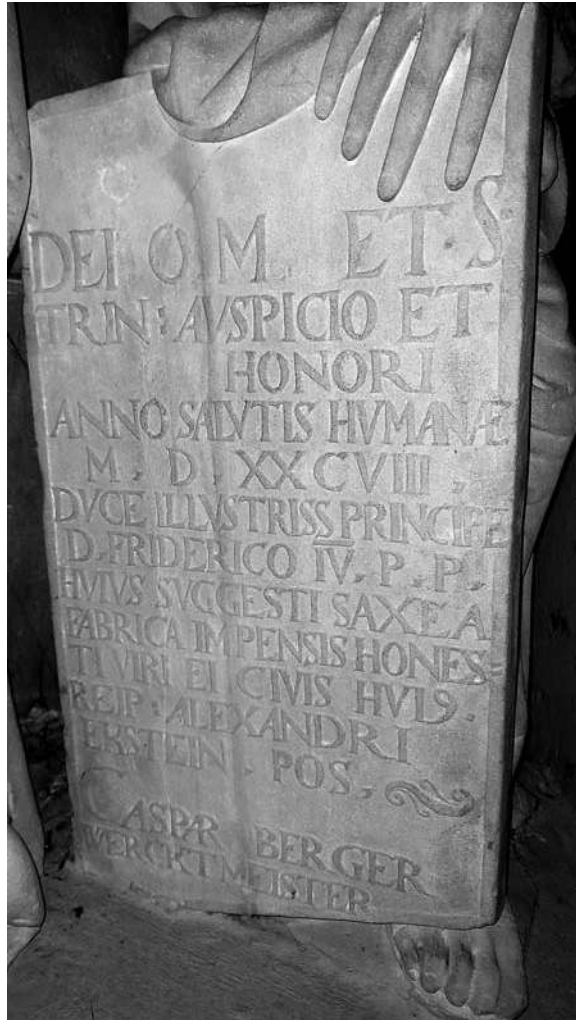 DEI O. M. ET. S.
TRIN: AVSPICIO ET
HONORI
ANNO SALVTIS HVMANÆ
M. D. XXCVIIII.
DVCE ILLVSTRISS PRINCIPE
D. FRIDERICO IV. P. P.
HVIVS SVGGESTI SAXEA
FABRICA IMPENSIS HONES-
TI VIRI EI CIVIS HVI9.
REIP: ALEXANDRI
EKSTEIN. POS.
CASPAR BERGER
WERCKTMEISTER